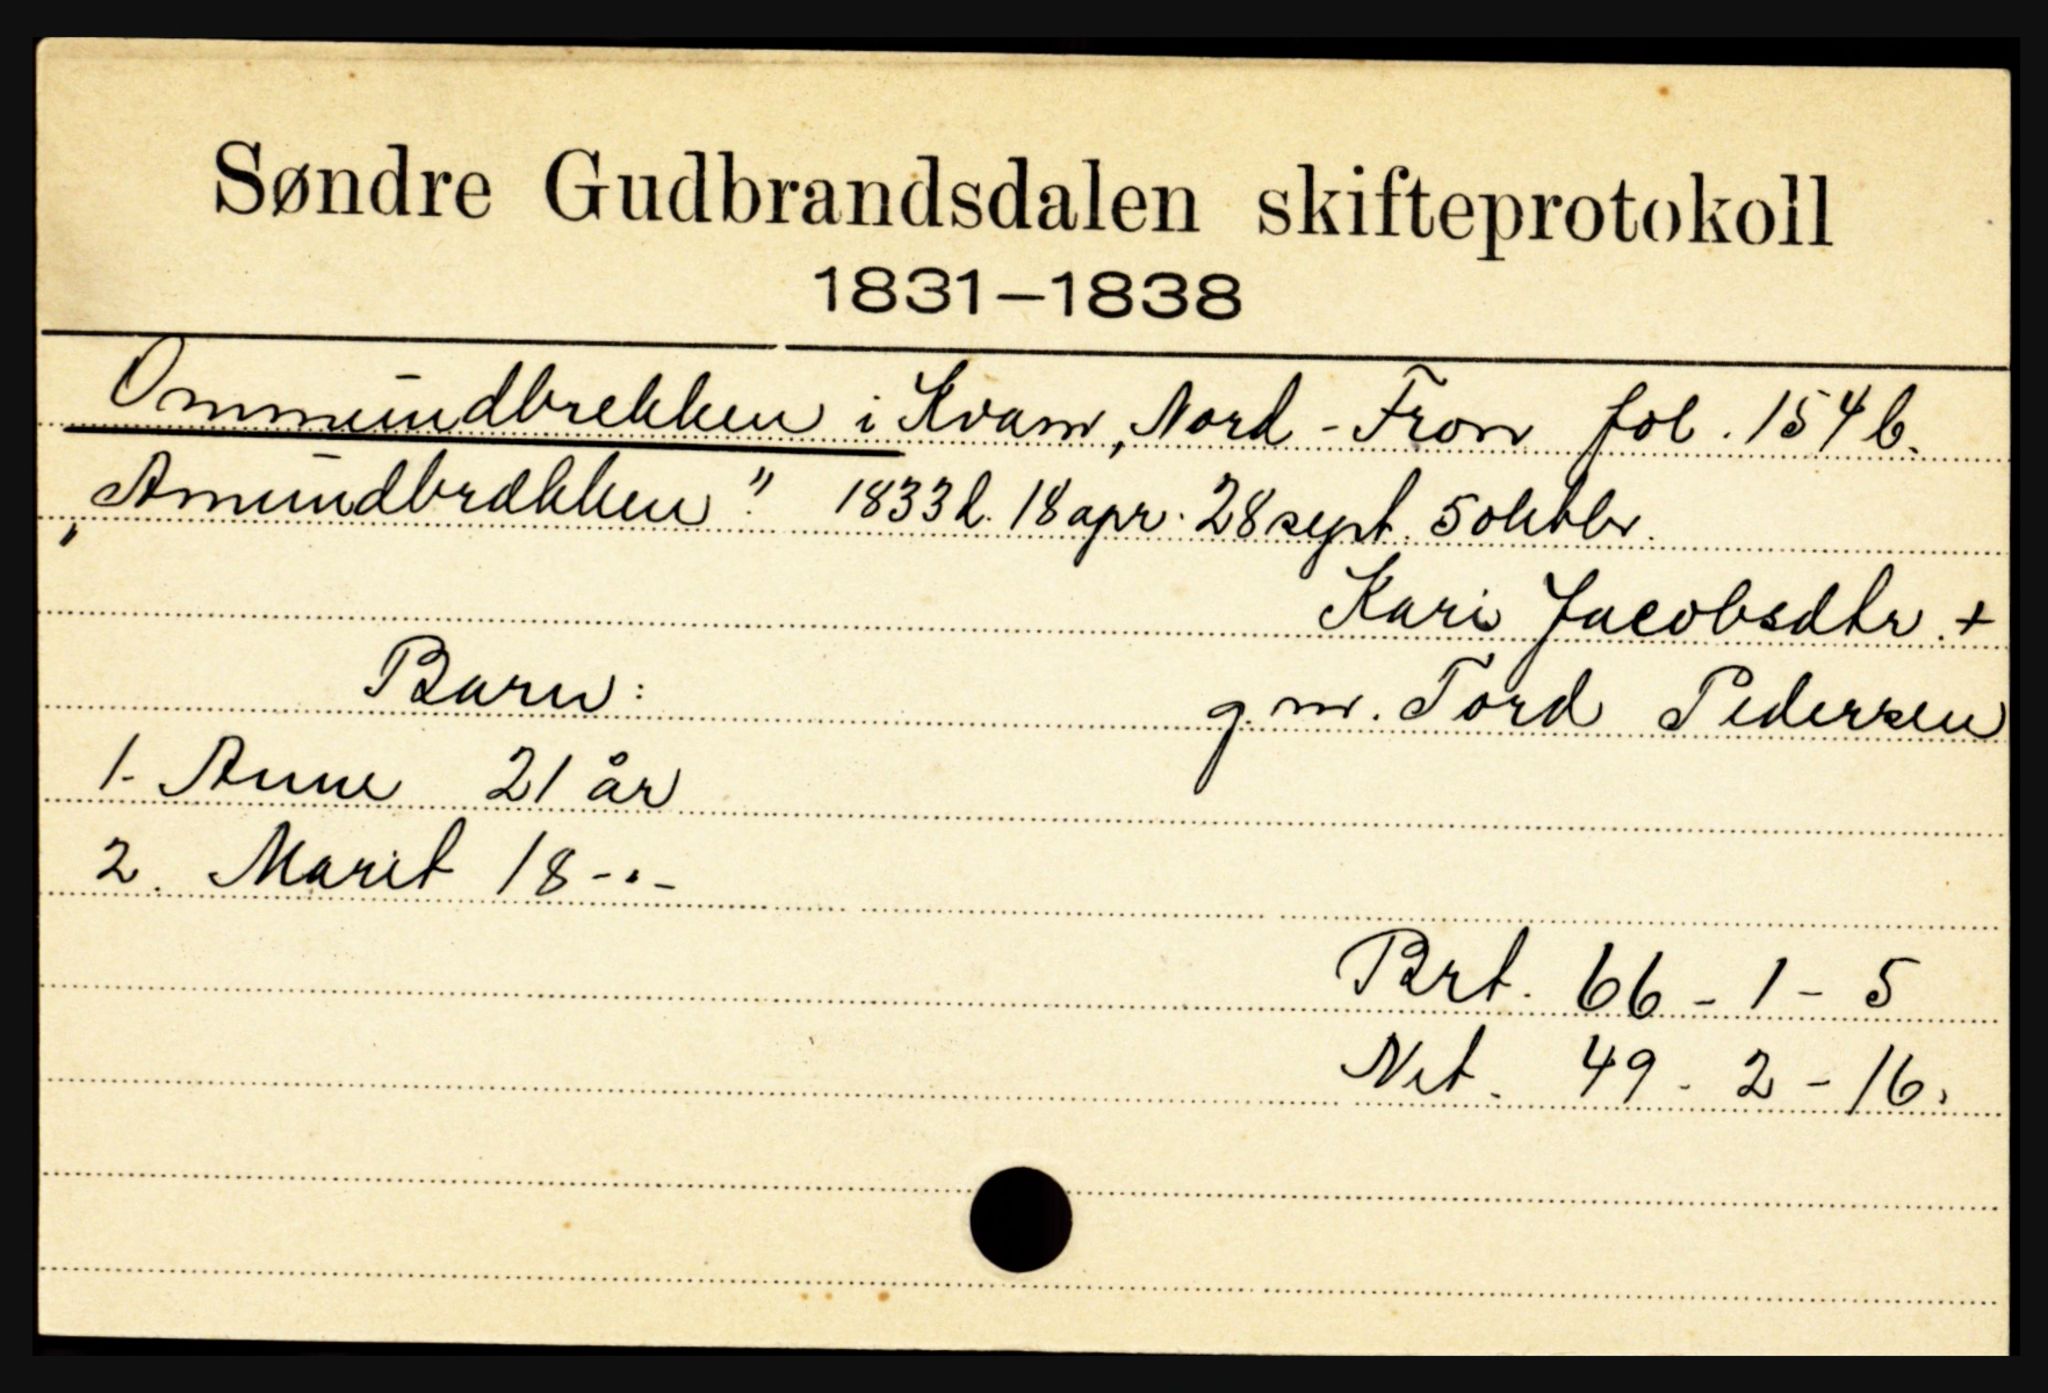 Søndre Gudbrandsdalen skifteprotokoll
1831–1838
Ommundbrekken i Kvam, Nord-Fron fol. 154b.
„Amundbrækken" 1833 d. 18 apr. 28 sept. 5 oktbr.
Kari Jacobsdtr. +
Barn: g. m. Tord Pedersen
1. Anne 21 år
2. Marit 18 -"-
Brt. 66 - 1 - 5
Net. 49 - 2 - 16.